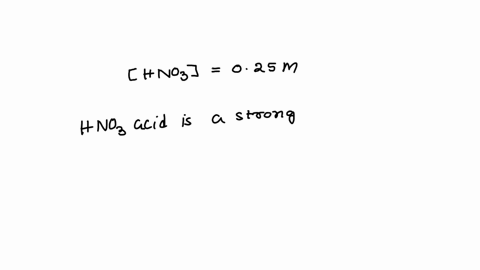 [HNO₃] = 0.25 M
HNO₃ acid is a strong